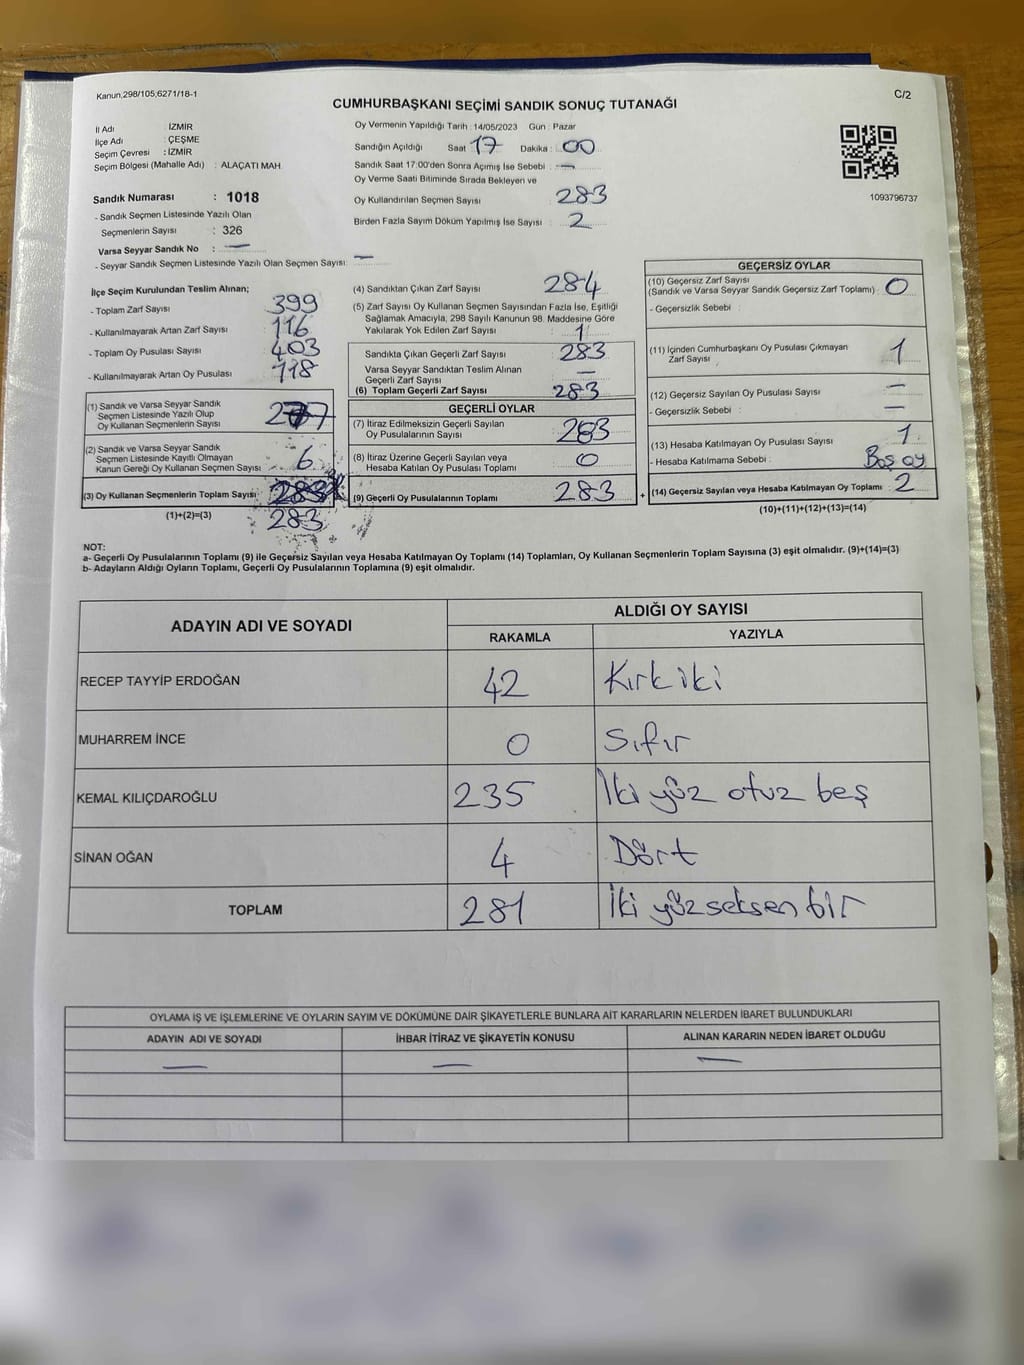 Kanun,298/105,6271/18-1
C/2
CUMHURBAŞKANI SEÇİMİ SANDIK SONUÇ TUTANAĞI
İl Adı : İZMİR
İlçe Adı : ÇEŞME
Seçim Çevresi : İZMİR
Seçim Bölgesi (Mahalle Adı) : ALAÇATI MAH.
Sandık Numarası : 1018
- Sandık Seçmen Listesinde Yazılı Olan
Seçmenlerin Sayısı : 326
Varsa Seyyar Sandık No : —
- Seyyar Sandık Seçmen Listesinde Yazılı Olan Seçmen Sayısı: —
Oy Vermenin Yapıldığı Tarih : 14/05/2023 Gün : Pazar
Sandığın Açıldığı Saat : 17 Dakika : 00
Sandık Saat 17:00'den Sonra Açımış İse Sebebi : —
Oy Verme Saati Bitiminde Sırada Bekleyen ve
Oy Kullandırılan Seçmen Sayısı 283
Birden Fazla Sayım Döküm Yapılmış İse Sayısı : 2
1093796737
İlçe Seçim Kurulundan Teslim Alınan;
- Toplam Zarf Sayısı 399
- Kullanılmayarak Artan Zarf Sayısı 116
- Toplam Oy Pusulası Sayısı 403
- Kullanılmayarak Artan Oy Pusulası 118
(1) Sandık ve Varsa Seyyar Sandık
Seçmen Listesinde Yazılı Olup
Oy Kullanan Seçmenlerin Sayısı 277
(2) Sandık ve Varsa Seyyar Sandık
Seçmen Listesinde Kayıtlı Olmayan
Kanun Gereği Oy Kullanan Seçmen Sayısı 6
(3) Oy Kullanan Seçmenlerin Toplam Sayısı 283
(1)+(2)=(3) 283
(4) Sandıktan Çıkan Zarf Sayısı 284
(5) Zarf Sayısı Oy Kullanan Seçmen Sayısından Fazla İse, Eşitliği
Sağlamak Amacıyla, 298 Sayılı Kanunun 98. Maddesine Göre
Yakılarak Yok Edilen Zarf Sayısı 1
Sandıkta Çıkan Geçerli Zarf Sayısı 283
Varsa Seyyar Sandıktan Teslim Alınan
Geçerli Zarf Sayısı —
(6) Toplam Geçerli Zarf Sayısı 283
GEÇERLİ OYLAR
(7) İtiraz Edilmeksizin Geçerli Sayılan
Oy Pusulalarının Sayısı 283
(8) İtiraz Üzerine Geçerli Sayılan veya
Hesaba Katılan Oy Pusulası Toplamı 0
(9) Geçerli Oy Pusulalarının Toplamı 283
+
GEÇERSİZ OYLAR
(10) Geçersiz Zarf Sayısı
(Sandık ve Varsa Seyyar Sandık Geçersiz Zarf Toplamı) : 0
- Geçersizlik Sebebi :
(11) İçinden Cumhurbaşkanı Oy Pusulası Çıkmayan
Zarf Sayısı 1
(12) Geçersiz Sayılan Oy Pusulası Sayısı —
- Geçersizlik Sebebi : —
(13) Hesaba Katılmayan Oy Pusulası Sayısı 1
- Hesaba Katılmama Sebebi : Boş oy
(14) Geçersiz Sayılan veya Hesaba Katılmayan Oy Toplamı : 2
(10)+(11)+(12)+(13)=(14)
NOT:
a- Geçerli Oy Pusulalarının Toplamı (9) ile Geçersiz Sayılan veya Hesaba Katılmayan Oy Toplamı (14) Toplamları, Oy Kullanan Seçmenlerin Toplam Sayısına (3) eşit olmalıdır. (9)+(14)=(3)
b- Adayların Aldığı Oyların Toplamı, Geçerli Oy Pusulalarının Toplamına (9) eşit olmalıdır.
ADAYIN ADI VE SOYADI
ALDIĞI OY SAYISI
RAKAMLA YAZIYLA
RECEP TAYYİP ERDOĞAN 42 Kırk iki
MUHARREM İNCE 0 Sıfır
KEMAL KILIÇDAROĞLU 235 İki yüz otuz beş
SİNAN OĞAN 4 Dört
TOPLAM 281 İki yüz seksen bir
OYLAMA İŞ VE İŞLEMLERİNE VE OYLARIN SAYIM VE DÖKÜMÜNE DAİR ŞİKAYETLERLE BUNLARA AİT KARARLARIN NELERDEN İBARET BULUNDUKLARI
ADAYIN ADI VE SOYADI İHBAR İTİRAZ VE ŞİKAYETİN KONUSU ALINAN KARARIN NEDEN İBARET OLDUĞU
— — —